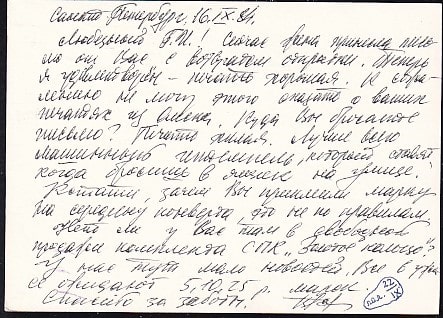 Санкт Петербург, 16.IX.91.
Любезный Г.И.! Сейчас жена принесла письмо
от Вас с возвратом открытки. Теперь
я удовлетворён – печать хорошая. К сожа-
лению не могу этого сказать о ваших
печатях из Омска. Куда Вы бросаете
письмо? Печать хилая. Лучше всего
машинный штемпель, который ставят
когда бросишь в ящик на улице.
Кстати, зачем Вы приклеили марку
на середину конверта, это не по правилам.
Нет ли у вас там в
продаже комплекта СПК „Золотое кольцо"?
У нас тут мало новостей. Все в
ожидают 5, 10, 25 р. марок.
Спасибо за заботы.
22
пол. IX